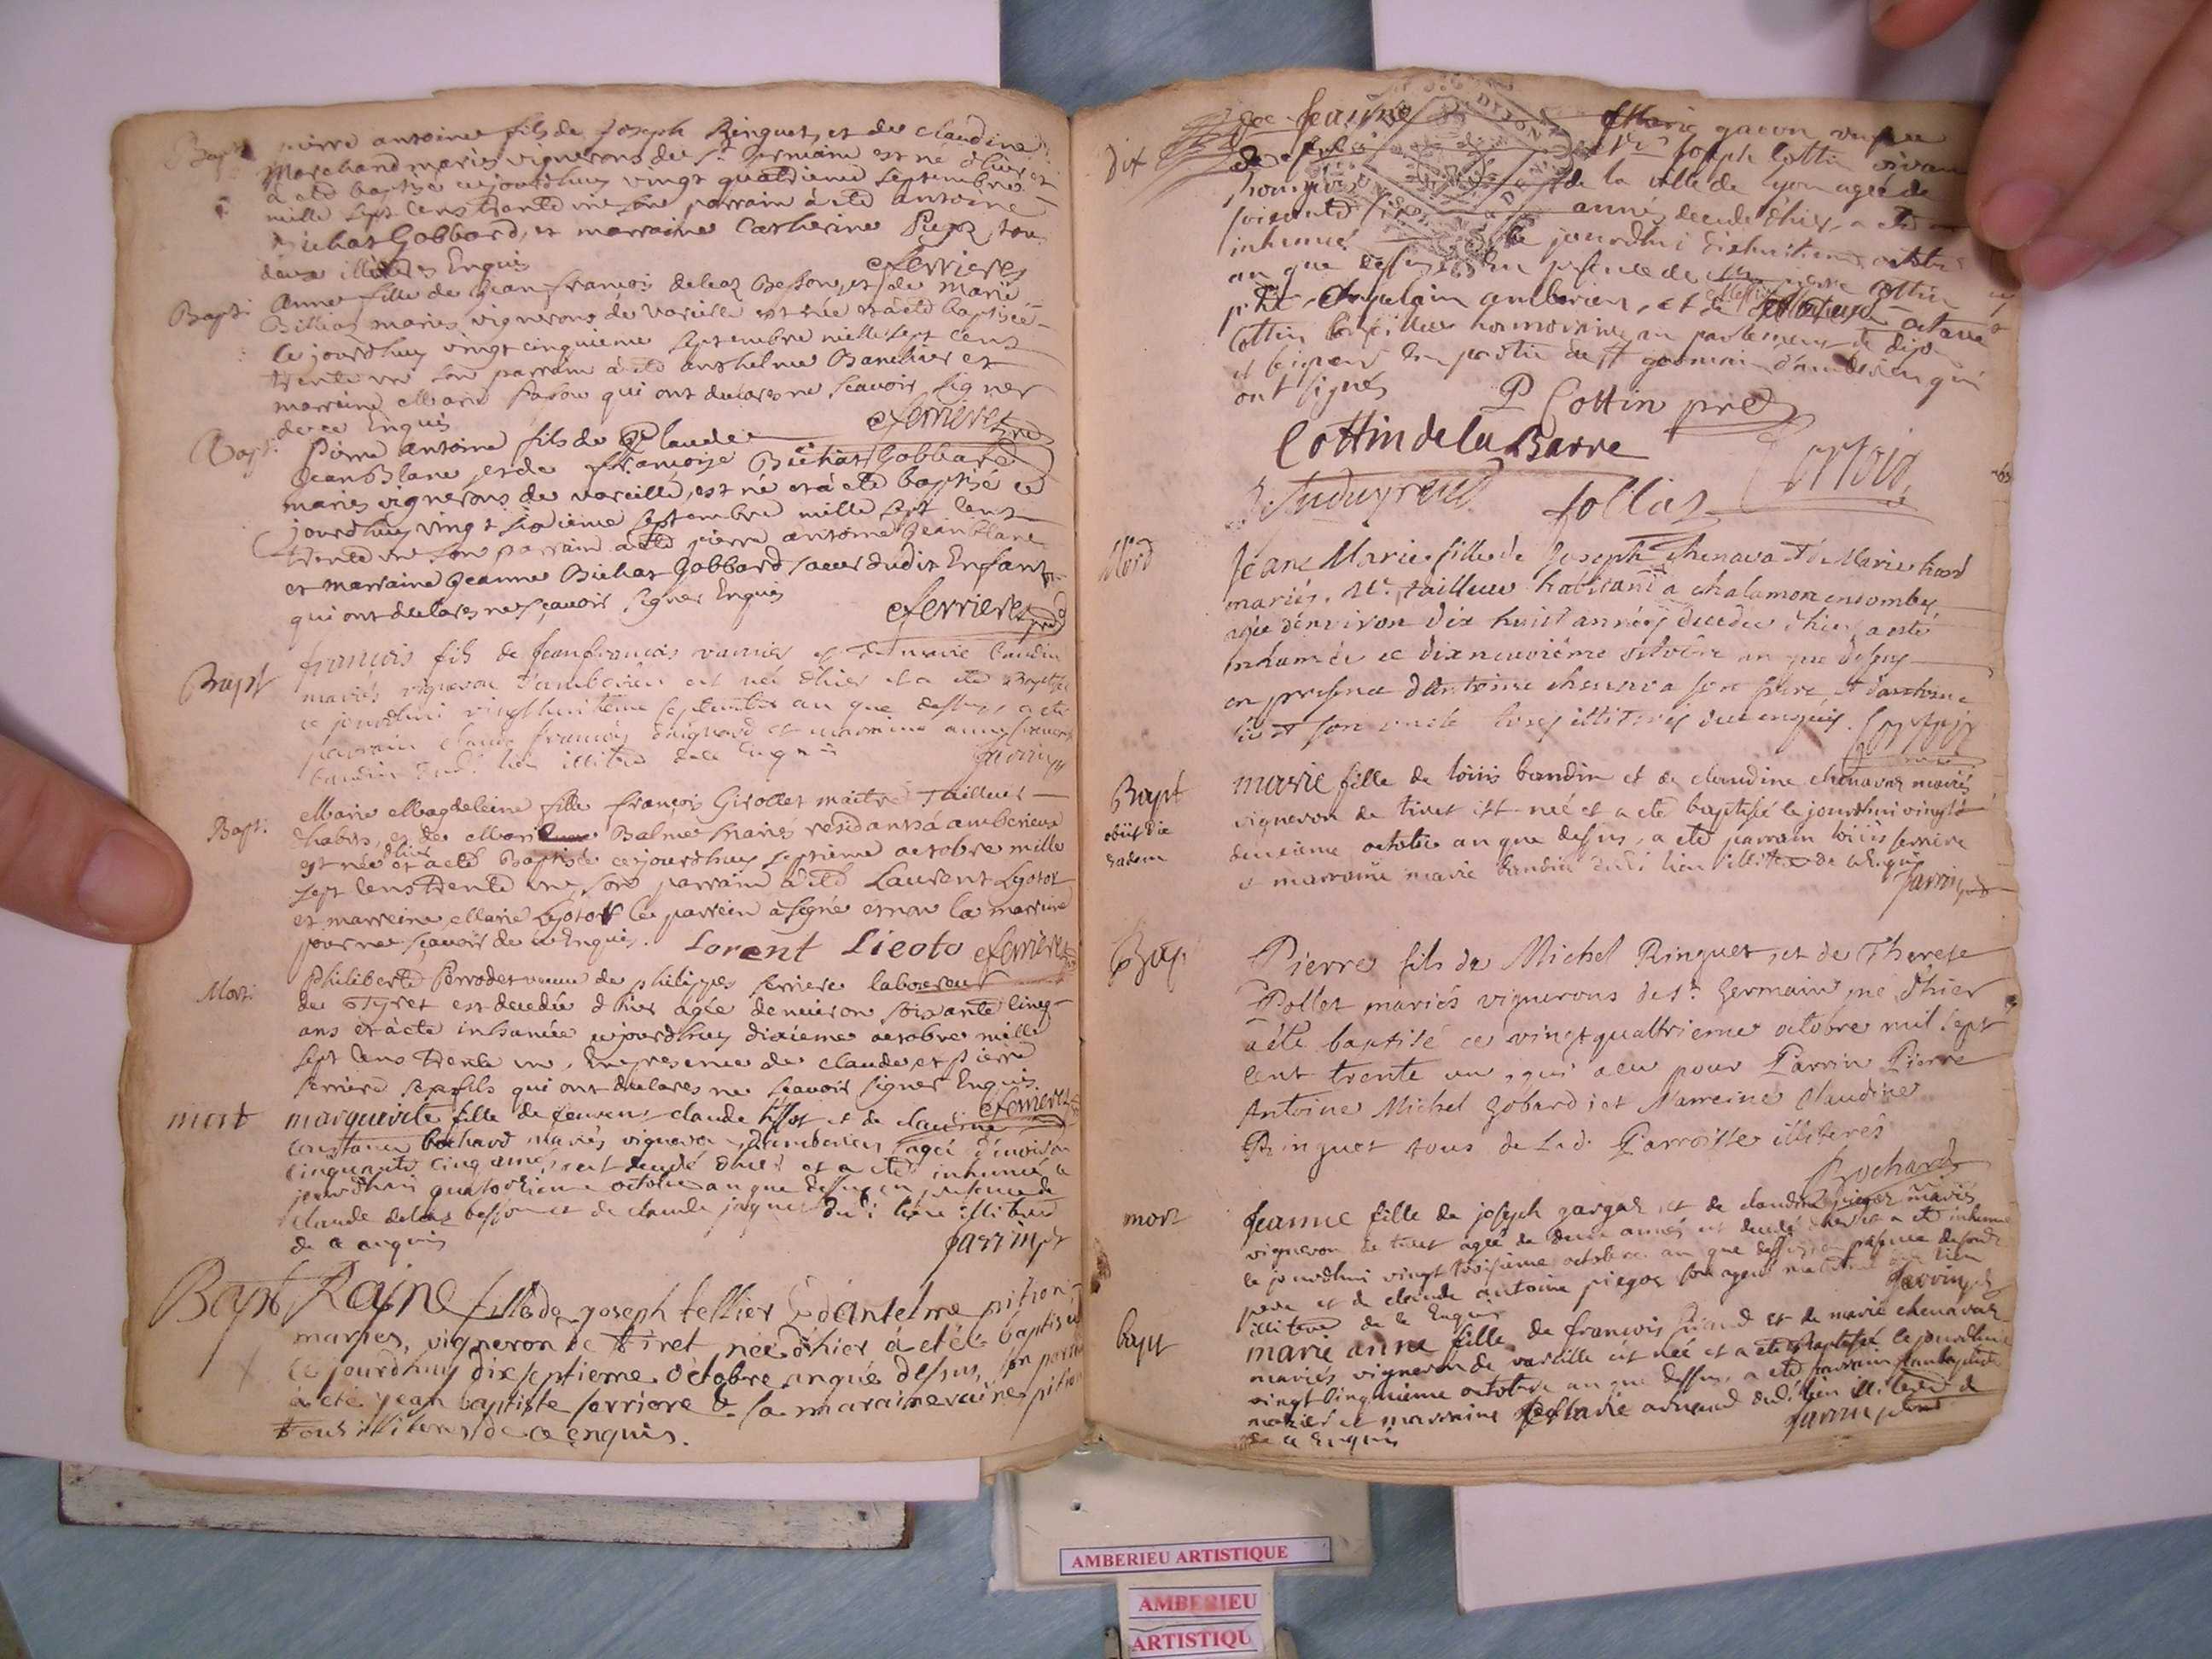 Bapt pierre antoine fils de Joseph Ringuet, et de Claudine
Marchand mariés vignerons de St Germain est né d'hier et
à eté baptisé cejourdhuy vingt quatrieme septembre
mille sept cens trente un son parrain à eté antoine
Bichat Gobbard, et marraine Catherine tou
deux illiteres Enquis
eferrieres
Bapt: Anne fille de Jean françois delas Besson, et de Marie
Billias mariés vignerons de vareille est née et à eté baptisée
ce jourdhuy vingt cinquieme septembre mille sept cens
trente un son parrain à eté anthelme Banchier et
marreine Marie qui ont declares ne scavoir signer
de ce Enquis
eferrieres pre
Bapt: Pierre antoine fils de Claude
JeanBlanc, et de françoise Bichat Gobbard
mariés vignerons de vareille, est né et à eté baptisé ce
jourdhuy vingt sixieme septembre mille sept cens
trente un son parrain à eté pierre antoine Jeanblanc
et marraine Jeanne Bichat Gobbard soeur dudit Enfant
qui ont declares ne scavoir signer Enquis
eferrieres pre
Bapt françois fils de Jean francois vannier et de marie baudin
mariés vigneron d'amberieu est né d'hier et a eté Baptisé
ce jourdhui vingt huitième septembre an que dessus, a eté
parrain claude françois et marraine anne
baudin dudi lieu illitere de ce Enquis
Bapt: Marie Magdeleine fille françois Girollet maitre Tailleur
d'habits, et de Marie Balme Mariés residants à amberieux
est née d'hier et à eté Baptisée cejourdhuy septieme octobre mille
sept cens trente un, son parrain à eté Laurent Lyotot
et marreine Marie Lyotot le parrein a signé et non la marreine
pour ne scavoir de ce Enquis. Lorent Lieoto eferrieres
Mort: Philiberte Perrodet veuve de philippes serriere laboureur
de Tyret est decedée d'hier agée denviron soixante cinq
ans et à eté inhumée cejourdhuy dixieme octobre mille
sept cens trente un, En presence de claude et pierre
serriere ses fils qui ont declares ne scavoir signer Enquis
eferrieres
mort marguerite fille de claude et de claudine
constance bochard mariés vigneron d'amberieu agée d'environ
cinquante cinq années est decedé d'hier et a eté inhumée ce
jourdhui quatorzieme octobre an que dessus en presence de
claude delas besson et de claude jaques du di lieu illitere
de ce enquis
jarrin pt
Bapt Raine fille de joseph tellier & dantelme pition
maryes, vigneron de tiret, née d'hier à eté baptisée
ce jourdhuy dixseptieme octobre anque desus, son parrain
à eté jean baptiste serriere & sa maraine raine pition
tous illiteres de ce enquis.
Jeanne Marie gacon veufve
de Sr Joseph Cottin vivan
bourgeois de la ville de lyon agée de
soixante années decedé d'hier, a eté
inhumée ce jourdhui dixhuitieme octobre
an que dessus en presence de Mre pierre cottin
ptre chapelain amberieu, et de octave
Cottin conseiller honnoraire au parlement de dijon
et seigneur en partie de St germain d'amberieu qui
ont signés P Cottin pre
Cottin de la Barre
follias
Cortois
Mord Jeane Marie fille de Joseph chenava et de Marie
mariés. Mt. tailleur habitant a chalamon en dombes,
agée denviron dix huit années decedée d'hier a esté
inhumée ce dixneuvième octobre an que desus
en presence d'Antoine chenava son frere, et d'antoine
son oncle tous illiteres de ce enquis. Cortois
Bapt marie fille de loüis baudin et de claudine chenavaz mariés
vigneron de tiret est neé et a eté baptisé le jourdhui vingt
obiit die
eadem
deuxieme octobre an que dessus, a eté parrain loüis serriere
et marraine marie baudin dudi lieu illitere de ce Enquis
Jarrin ptre
Bap: Pierre fils de Michel Ringuet, et de Therese
Pollet mariés vignerons de St Germain né d'hier
a été baptisé ce vingtquattrieme octobre mil sept
cent trente un, qui a eu pour Parrin Pierre
Antoine Michel Gobard, et Marreine Claudine
Ringuet tous de la d. Parroisse illiteres
Brochard
mort Jeanne fille de joseph gargaz et de claudine piegoz mariés
vigneron de tiret agée de deux années est decedé d'hier et a eté inhumé
le jourdhui vingt troisieme octobre an que dessus, en presence de sondi
pere et de claude antoine piegoz son ayeul maternel dudi lieu
illitere de ce Enquis
Jarrin ptre
bapt marie anne fille de francois et de marie chenavaz
mariés vigneron de vareille est née et a eté Baptisé le jourdhui
vingt cinquieme octobre an que dessus, a eté parrain jeanbaptiste
et marraine Marie arnaud dudi lieu illitere de
de ce Enquis
Jarrin ptre
AMBERIEU ARTISTIQUE
AMBERIEU
ARTISTIQU